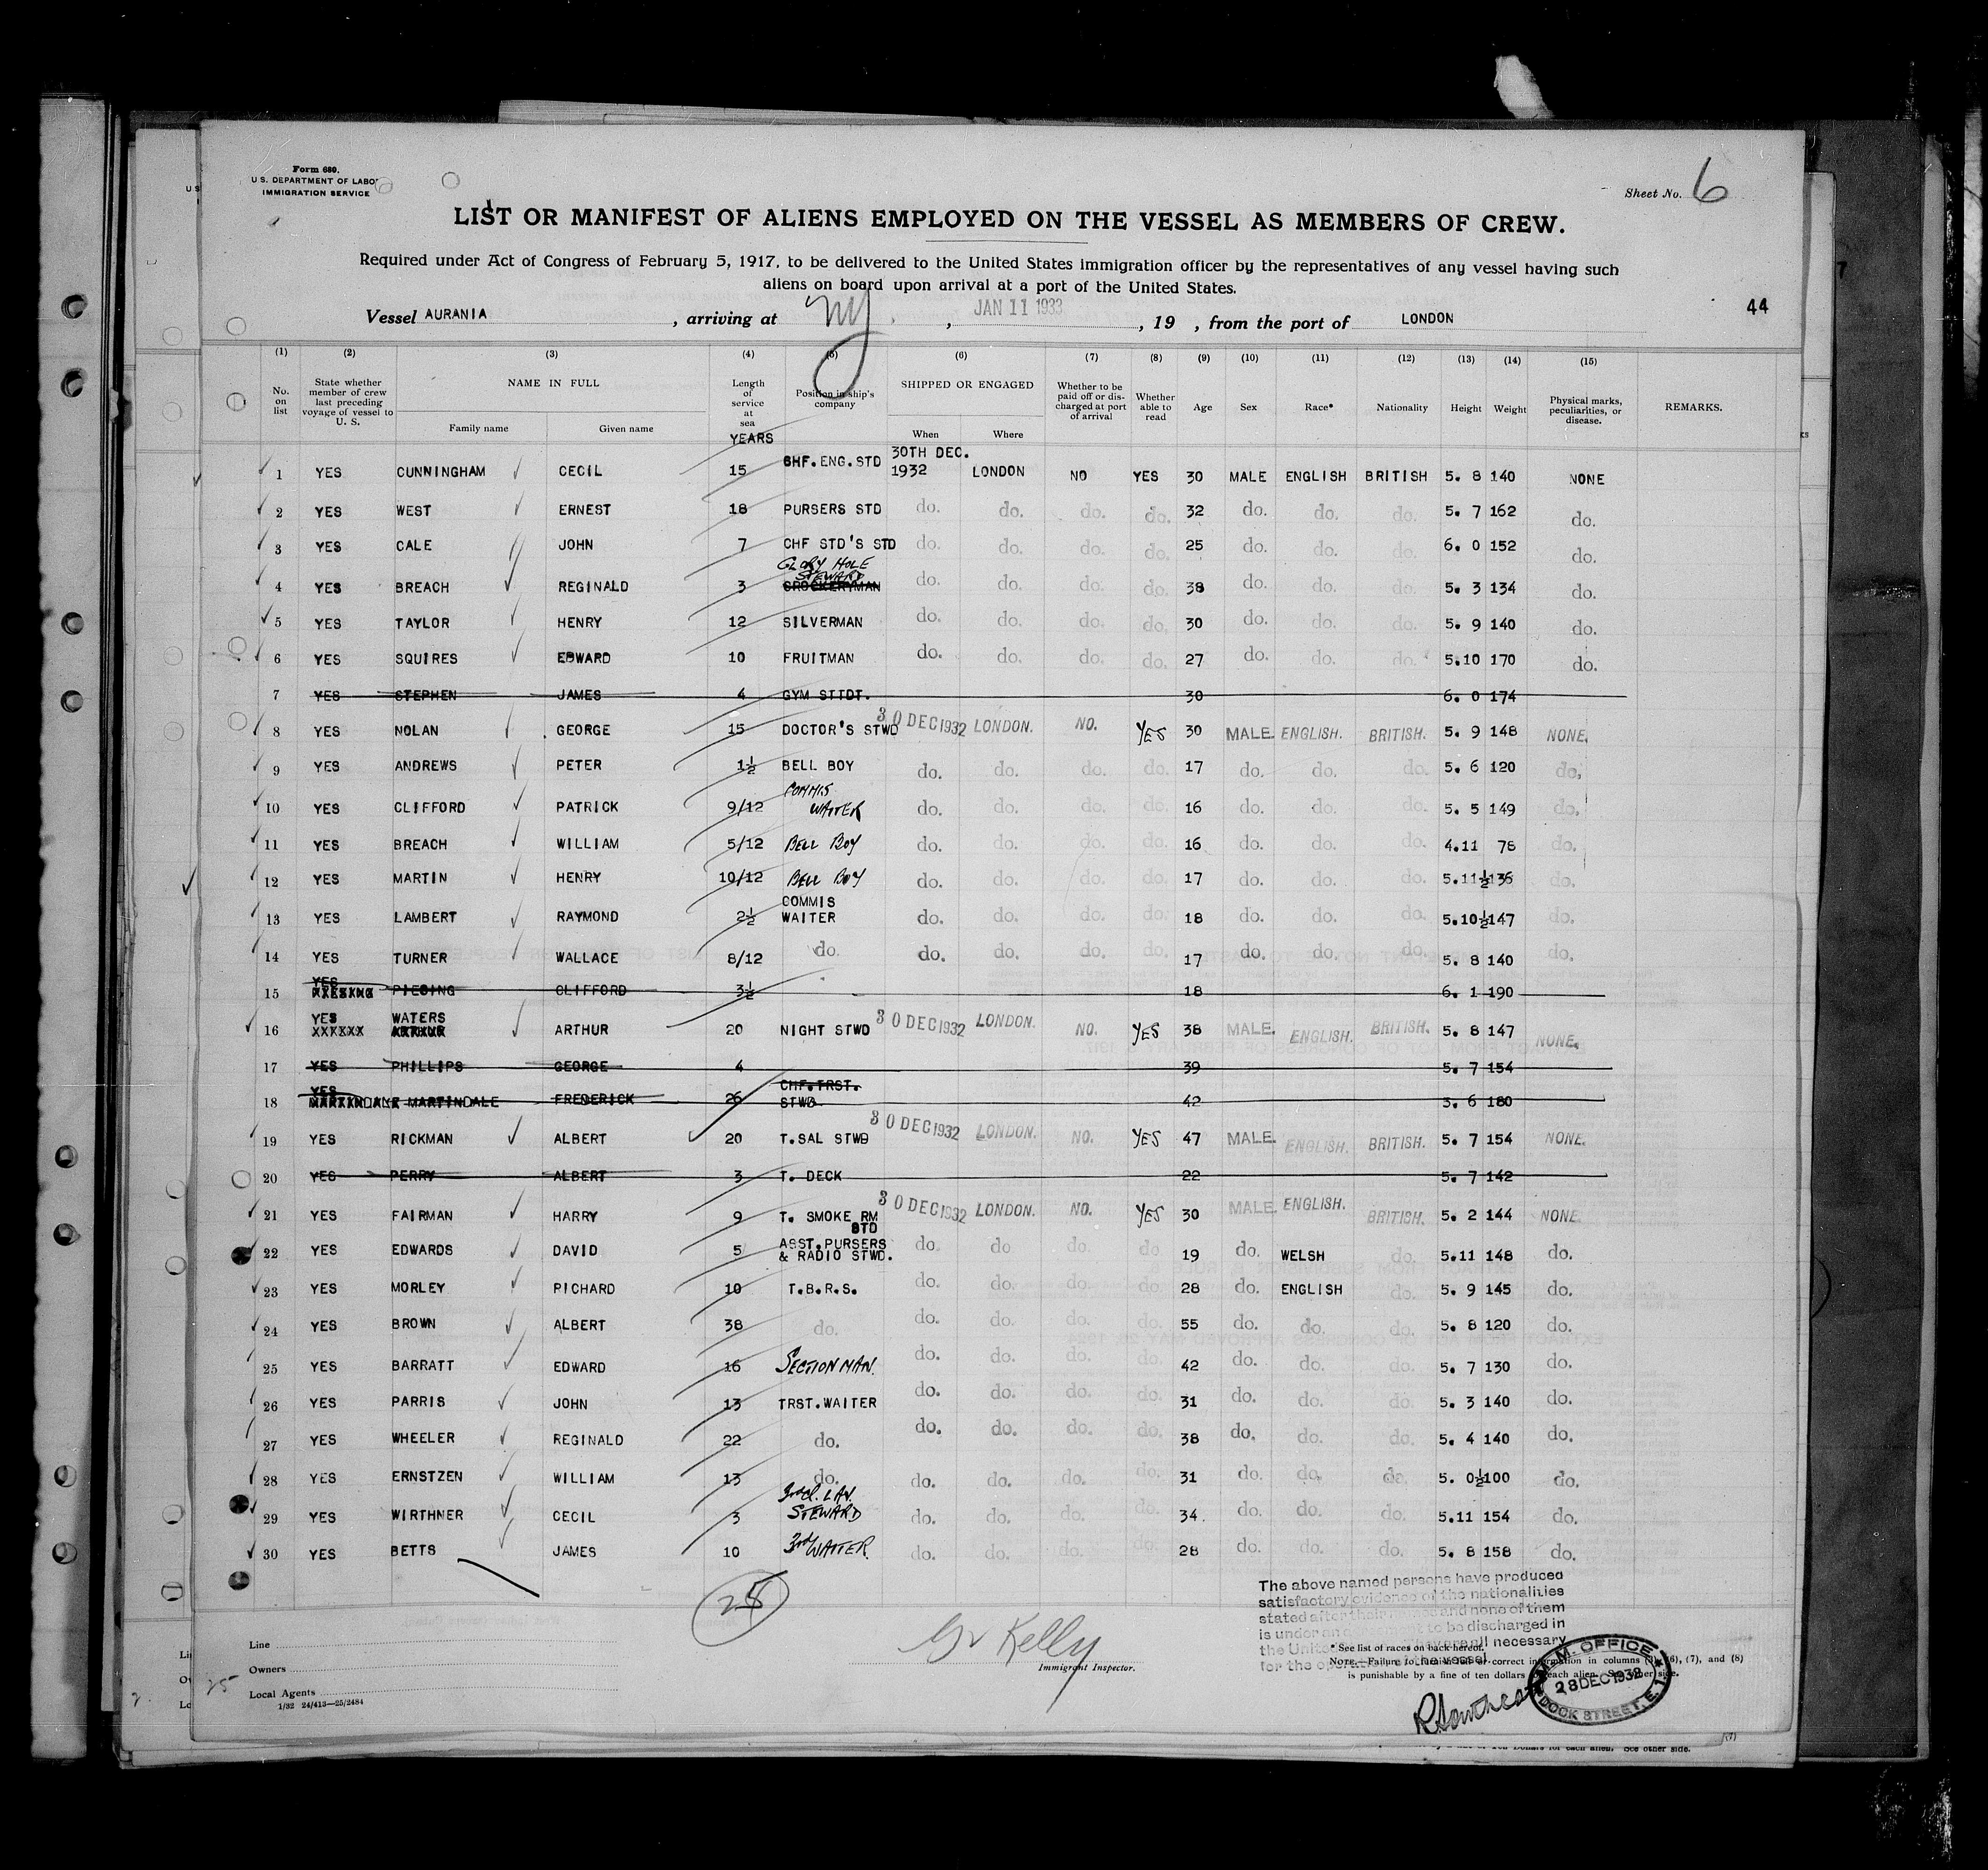 Form 680.
U.S. DEPARTMENT OF LABO
IMMIGRATION SERVICE
Sheet No. 6
LIST OR MANIFEST OF ALIENS EMPLOYED ON THE VESSEL AS MEMBERS OF CREW.
Required under Act of Congress of February 5, 1917, to be delivered to the United States immigration officer by the representatives of any vessel having such
aliens on board upon arrival at a port of the United States.
44
Vessel AURANIA, arriving at NY, JAN 11 1933, 19 , from the port of LONDON
(1) (2) (3) (4) (5) (6) (7) (8) (9) (10) (11) (12) (13) (14) (15)
No. on list State whether member of crew last preceding voyage of vessel to U. S. NAME IN FULL Family name Given name Length of service at sea YEARS Position in ship's company SHIPPED OR ENGAGED When Where Whether to be paid off or discharged at port of arrival Whether able to read Age Sex Race* Nationality Height Weight Physical marks, peculiarities, or disease. REMARKS.
1 YES CUNNINGHAM CECIL 15 CHF.ENG.STD 30TH DEC. 1932 LONDON NO YES 30 MALE ENGLISH BRITISH 5. 8 140 NONE
2 YES WEST ERNEST 18 PURSERS STD do. do. do. do. 32 do. do. do. 5. 7 162 do.
3 YES CALE JOHN 7 CHF STD'S STD do. do. do. do. 25 do. do. do. 6. 0 152 do.
4 YES BREACH REGINALD 3 GLORY HOLE STEWARD CROCKERYMAN do. do. do. do. 38 do. do. do. 5. 3 134 do.
5 YES TAYLOR HENRY 12 SILVERMAN do. do. do. do. 30 do. do. do. 5. 9 140 do.
6 YES SQUIRES EDWARD 10 FRUITMAN do. do. do. do. 27 do. do. do. 5.10 170 do.
7 YES STEPHEN JAMES 4 GYM STTDT. 30 6. 0 174
8 YES NOLAN GEORGE 15 DOCTOR'S STWD 30 DEC 1932 LONDON. NO. YES 30 MALE. ENGLISH. BRITISH. 5. 9 148 NONE.
9 YES ANDREWS PETER 1½ BELL BOY do. do. do. do. 17 do. do. do. 5. 6 120 do.
10 YES CLIFFORD PATRICK 9/12 COMMIS WAITER do. do. do. do. 16 do. do. do. 5. 5 149 do.
11 YES BREACH WILLIAM 5/12 BELL BOY do. do. do. do. 16 do. do. do. 4.11 78 do.
12 YES MARTIN HENRY 10/12 BELL BOY do. do. do. do. 17 do. do. do. 5.11½ 136 do.
13 YES LAMBERT RAYMOND 2½ COMMIS WAITER do. do. do. do. 18 do. do. do. 5.10½ 147 do.
14 YES TURNER WALLACE 8/12 do. do. do. do. do. 17 do. do. do. 5. 8 140 do.
15 YES CLIFFORD 3½ 18 6. 1 190
16 YES XXXXXX WATERS ARTHUR ARTHUR 20 NIGHT STWD 30 DEC 1932 LONDON. NO. YES 38 MALE. ENGLISH. BRITISH. 5. 8 147 NONE.
17 YES PHILLIPS GEORGE 4 39 5. 7 154
18 YES MARTINDALE MARTINDALE FREDERICK 26 CHF.TRST. STWD 42 5. 6 180
19 YES RICKMAN ALBERT 20 T.SAL STWD 30 DEC 1932 LONDON. NO. YES 47 MALE. ENGLISH. BRITISH. 5. 7 154 NONE.
20 YES PERRY ALBERT 3 T. DECK 22 5. 7 142
21 YES FAIRMAN HARRY 9 T. SMOKE RM STD 30 DEC 1932 LONDON. NO. YES 30 MALE. ENGLISH. BRITISH. 5. 2 144 NONE
22 YES EDWARDS DAVID 5 ASST.PURSERS & RADIO STWD. do. do do. do 19 do. WELSH do. 5.11 148 do.
23 YES MORLEY PICHARD 10 T.B.R.S. do. do. do. do. 28 do. ENGLISH do. 5. 9 145 do.
24 YES BROWN ALBERT 38 do. do. do. do. do. 55 do. do. do. 5. 8 120 do.
25 YES BARRATT EDWARD 16 SECTION MAN. do. do. do. do. 42 do. do. do. 5. 7 130 do.
26 YES PARRIS JOHN 13 TRST.WAITER do. do. do. do. 31 do. do. do. 5. 3 140 do.
27 YES WHEELER REGINALD 22 do. do. do. do. do. 38 do. do. do. 5. 4 140 do.
28 YES ERNSTZEN WILLIAM 13 do. do. do. do. do. 31 do. do. do. 5. 0½ 100 do.
29 YES WIRTHNER CECIL 3 3rd Cl. LAV. STEWARD do. do. do. do. 34. do. do. do. 5.11 154 do.
30 YES BETTS JAMES 10 3rd WAITER. do. do. do. do. 28 do. do. do. 5. 8 158 do.
25
The above named persons have produced
satisfactory evidence of the nationalities
stated after their names and none of them
is under an to be discharged in
the Unit all necessary
for the oper the vessel
Line
Owners
Local Agents
1/32 24/413—25/2484
25
Kelly
Immigrant Inspector.
* See list of races on back hereof.
NOTE.—Failure to furnish full or correct information in columns (3), (6), (7), and (8)
is punishable by a fine of ten dollars for each alien. See other side.
M.M. OFFICE
28 DEC 1932
DOCK STREET, E.1.
See other side.